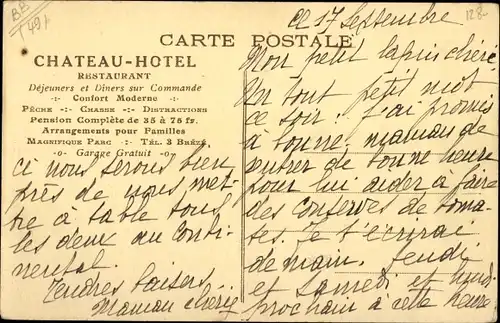 BB
(49)
128-
Ce 17 Septembre
CARTE POSTALE
CHATEAU-HOTEL
RESTAURANT
Déjeuners et Dîners sur Commande
-:- Confort Moderne -:-
PÊCHE -:- CHASSE -:- DISTRACTIONS
Pension Complète de 35 à 75 fr.
Arrangements pour Familles
MAGNIFIQUE PARC -:- TÉL. 3 BRÉZÉ,
-o- Garage Gratuit -o-
Mon petit lapin chéri
Un tout petit mot
ce soir! j'ai promis
à bonne maman de
rentrer de bonne heure
pour lui aider à faire
des conserves de toma-
tes. Je t'écrirai
demain. Jeudi
et Samedi et lundi
prochain à cette heure
ci nous serons bien
près de nous met-
tre à table tous
les deux au conti-
nental.
Tendres baisers
Maman chérie